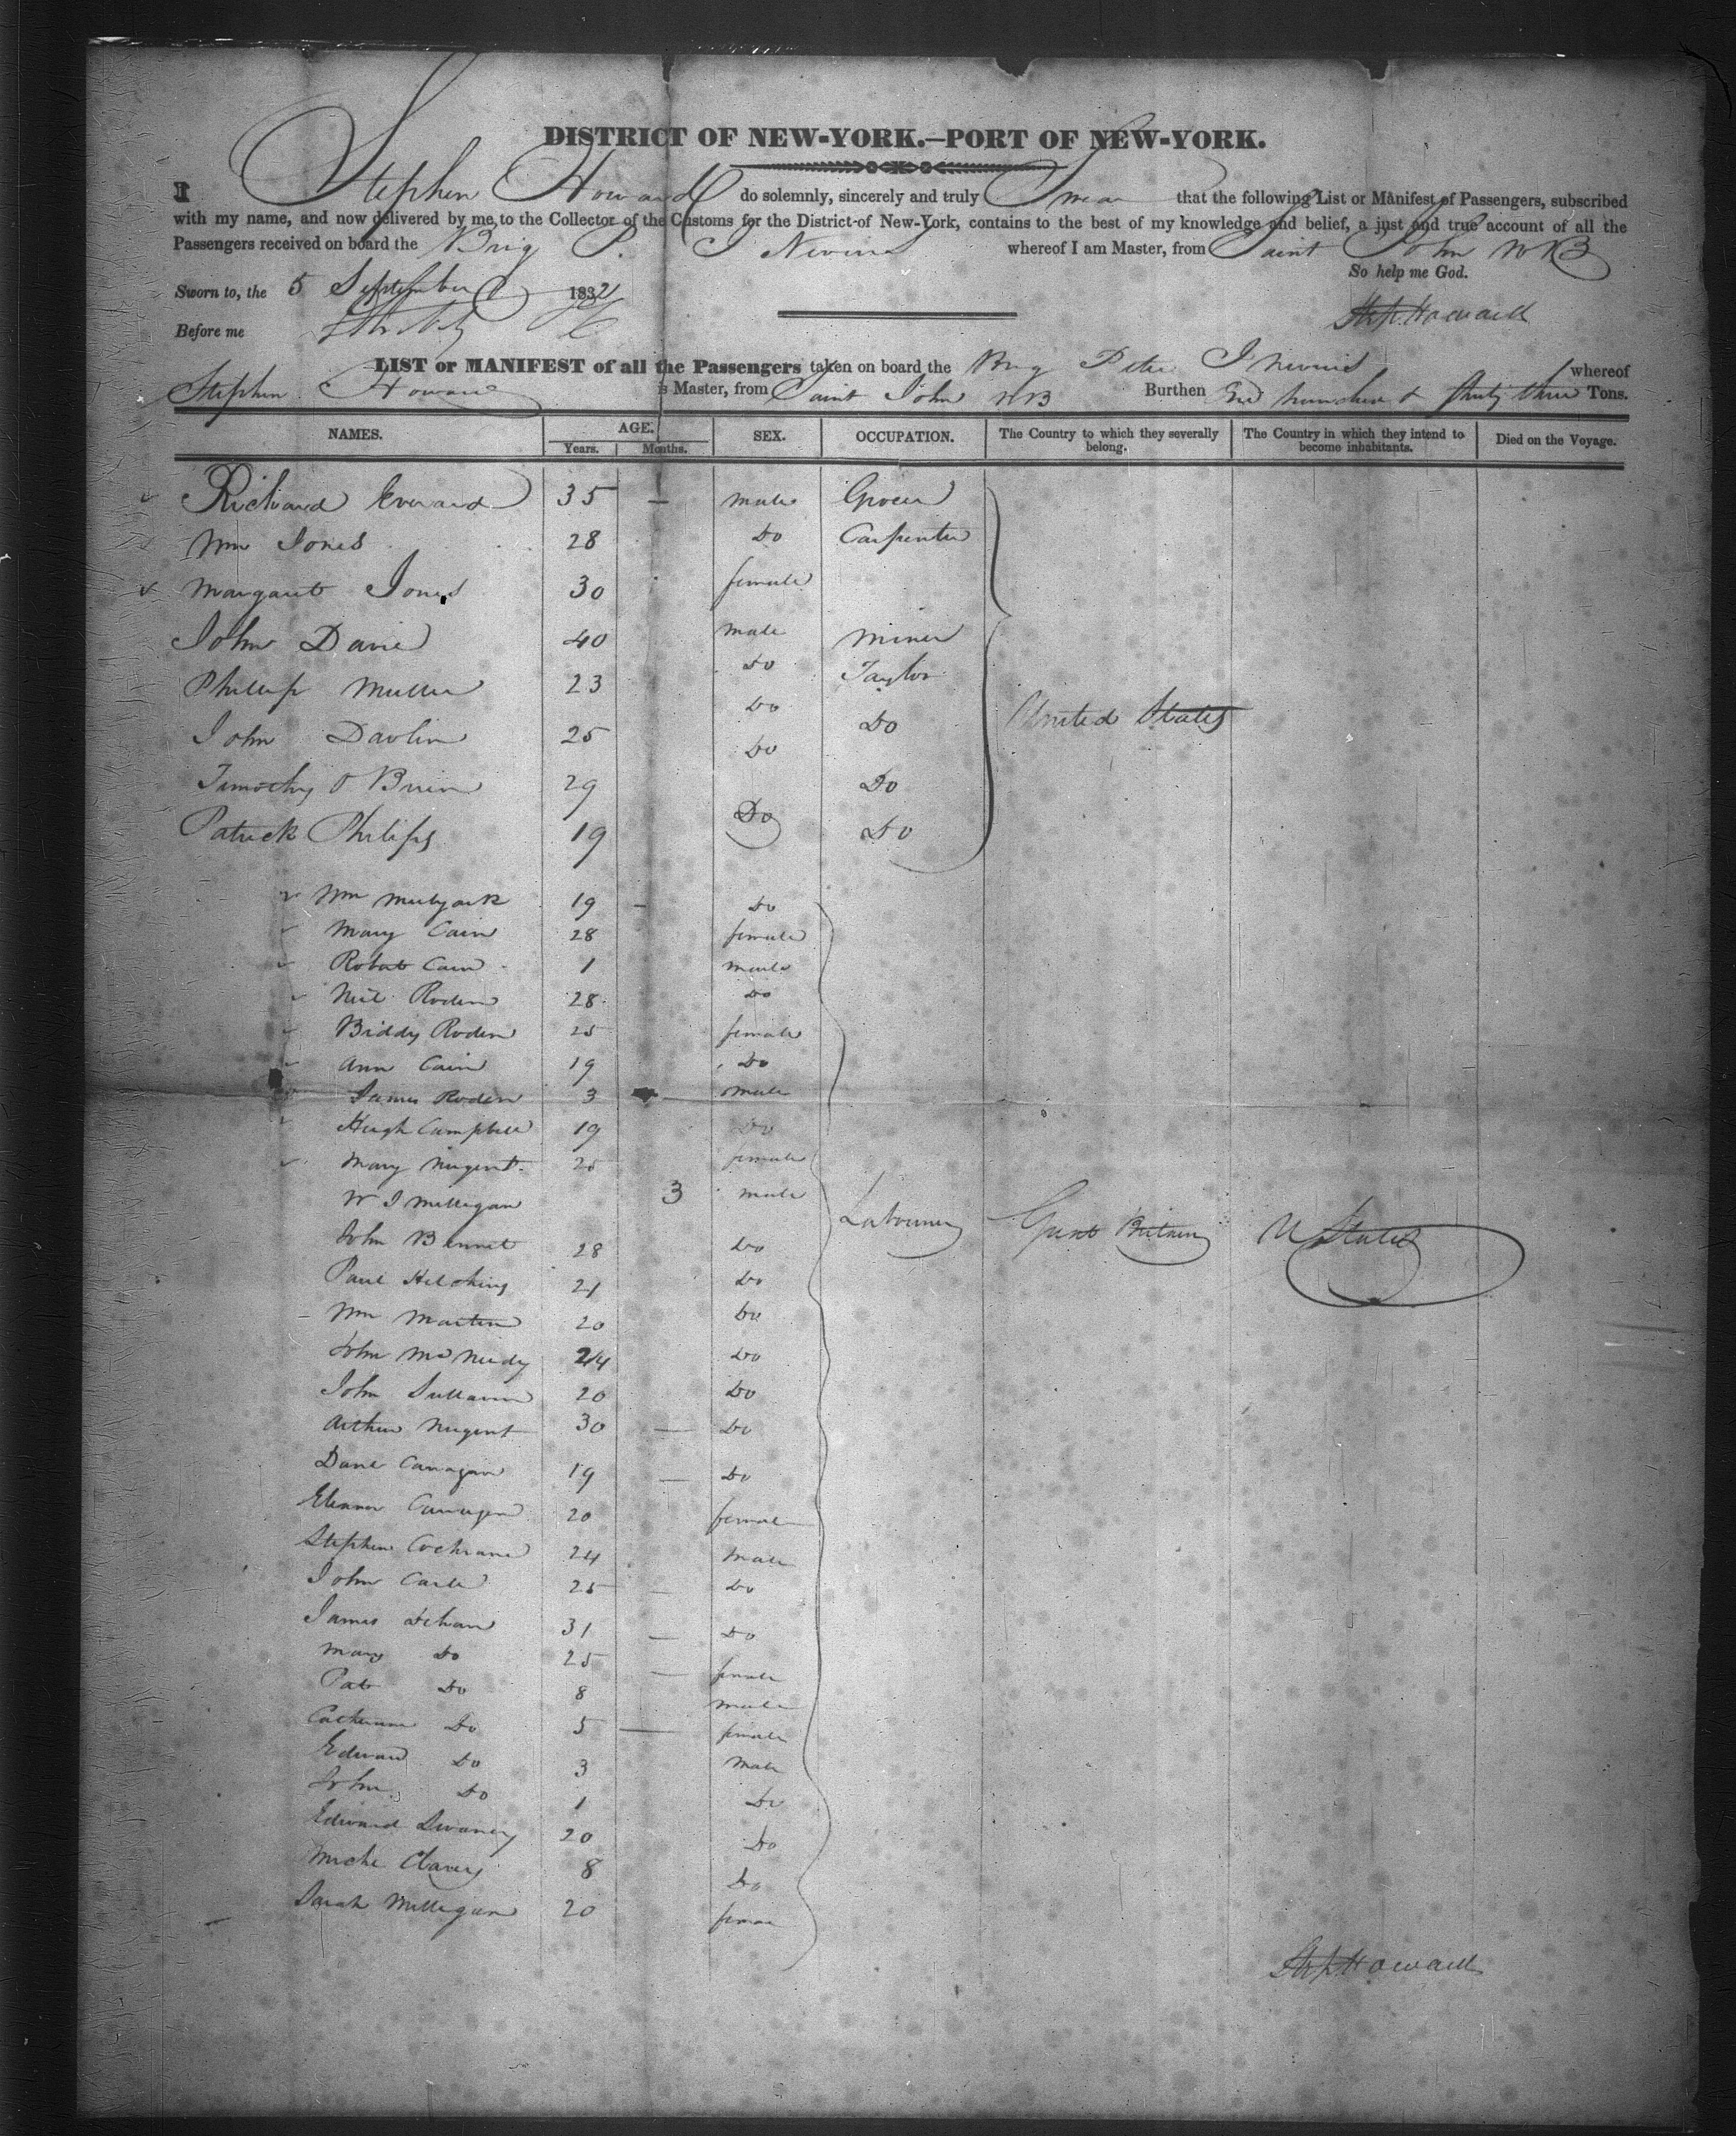 DISTRICT OF NEW-YORK.—PORT OF NEW-YORK.
I Stephen Howard do solemnly, sincerely and truly Swear that the following List or Manifest of Passengers, subscribed
with my name, and now delivered by me to the Collector of the Customs for the District of New-York, contains to the best of my knowledge and belief, a just and true account of all the
Passengers received on board the Brig P. I Nevius whereof I am Master, from Saint John NB
So help me God.
Sworn to, the 5 September 1832
Steph Howard
Before me
LIST or MANIFEST of all the Passengers taken on board the Brig Peter I Nevius whereof
Stephen Howard is Master, from Saint John NB Burthen One hundred & thirty three Tons.
NAMES. AGE. SEX. OCCUPATION. The Country to which they severally belong. The Country in which they intend to become inhabitants. Died on the Voyage.
Years. Months.
Richard Everard 35 — male Grocer
Wm Jones 28 Do Carpenter
Margaret Jones 30 female
John Davie 40 male Miner
Phillip Muller 23 Do Taylor
John Davlin 25 Do Do United States
Timothy O Brien 29 Do Do
Patrick Philips 19 Do Do
Wm 19 — Do
Mary Cain 28 female
Robert Cain 1 male
Neil Roden 28 Do
Biddy Roden 25 female
Ann Cain 19 Do
James Roden 3 male
Hugh Campbell 19 Do
Mary Nugent 25 female
W I Milligan 3 male Labourer Great Britain U States
John Bennet 28 Do
Paul 21 Do
Wm Martin 20 Do
John 24 Do
John Sullivan 20 Do
Arthur Nugent 30 — Do
Danl Canagan 19 — Do
Eleanor Canagan 20 female
Stephen Cochrane 24 male
John Carle 25 — Do
James Dehan 31 — Do
Mary Do 25 — female
Pat Do 8 male
Catherine Do 5 — female
Edward Do 3 male
John Do 1 Do
Edward Divaney 20 Do
Miche Clavey 8 Do
Sarah Milligan 20 female
Steph Howard